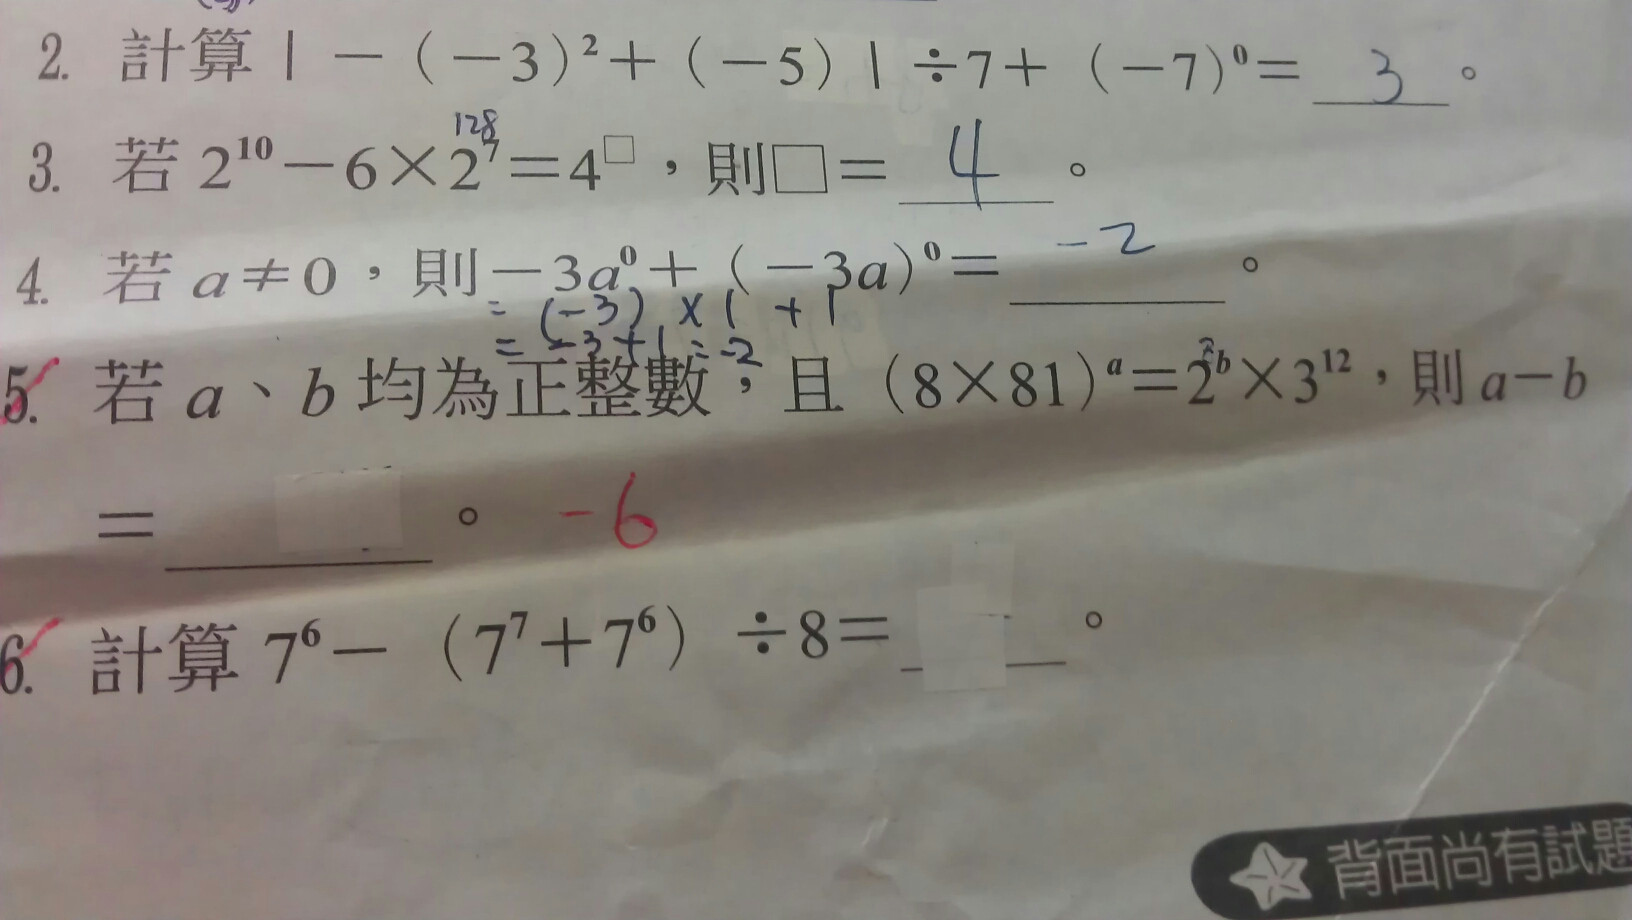 2. 計算|－(－3)²＋(－5)|÷7＋(－7)⁰＝ 3 。
128
3. 若 2¹⁰－6×2⁷＝4^□，則□＝ 4 。
4. 若 a≠0，則－3a⁰＋(－3a)⁰＝ -2 。
= (-3) × 1 + 1
= -3 + 1 = -2
5. 若 a、b 均為正整數，且 (8×81)^a＝2^b×3¹²，則 a－b
＝ 。 -6
6. 計算 7⁶－(7⁷＋7⁶)÷8＝ 。
背面尚有試題